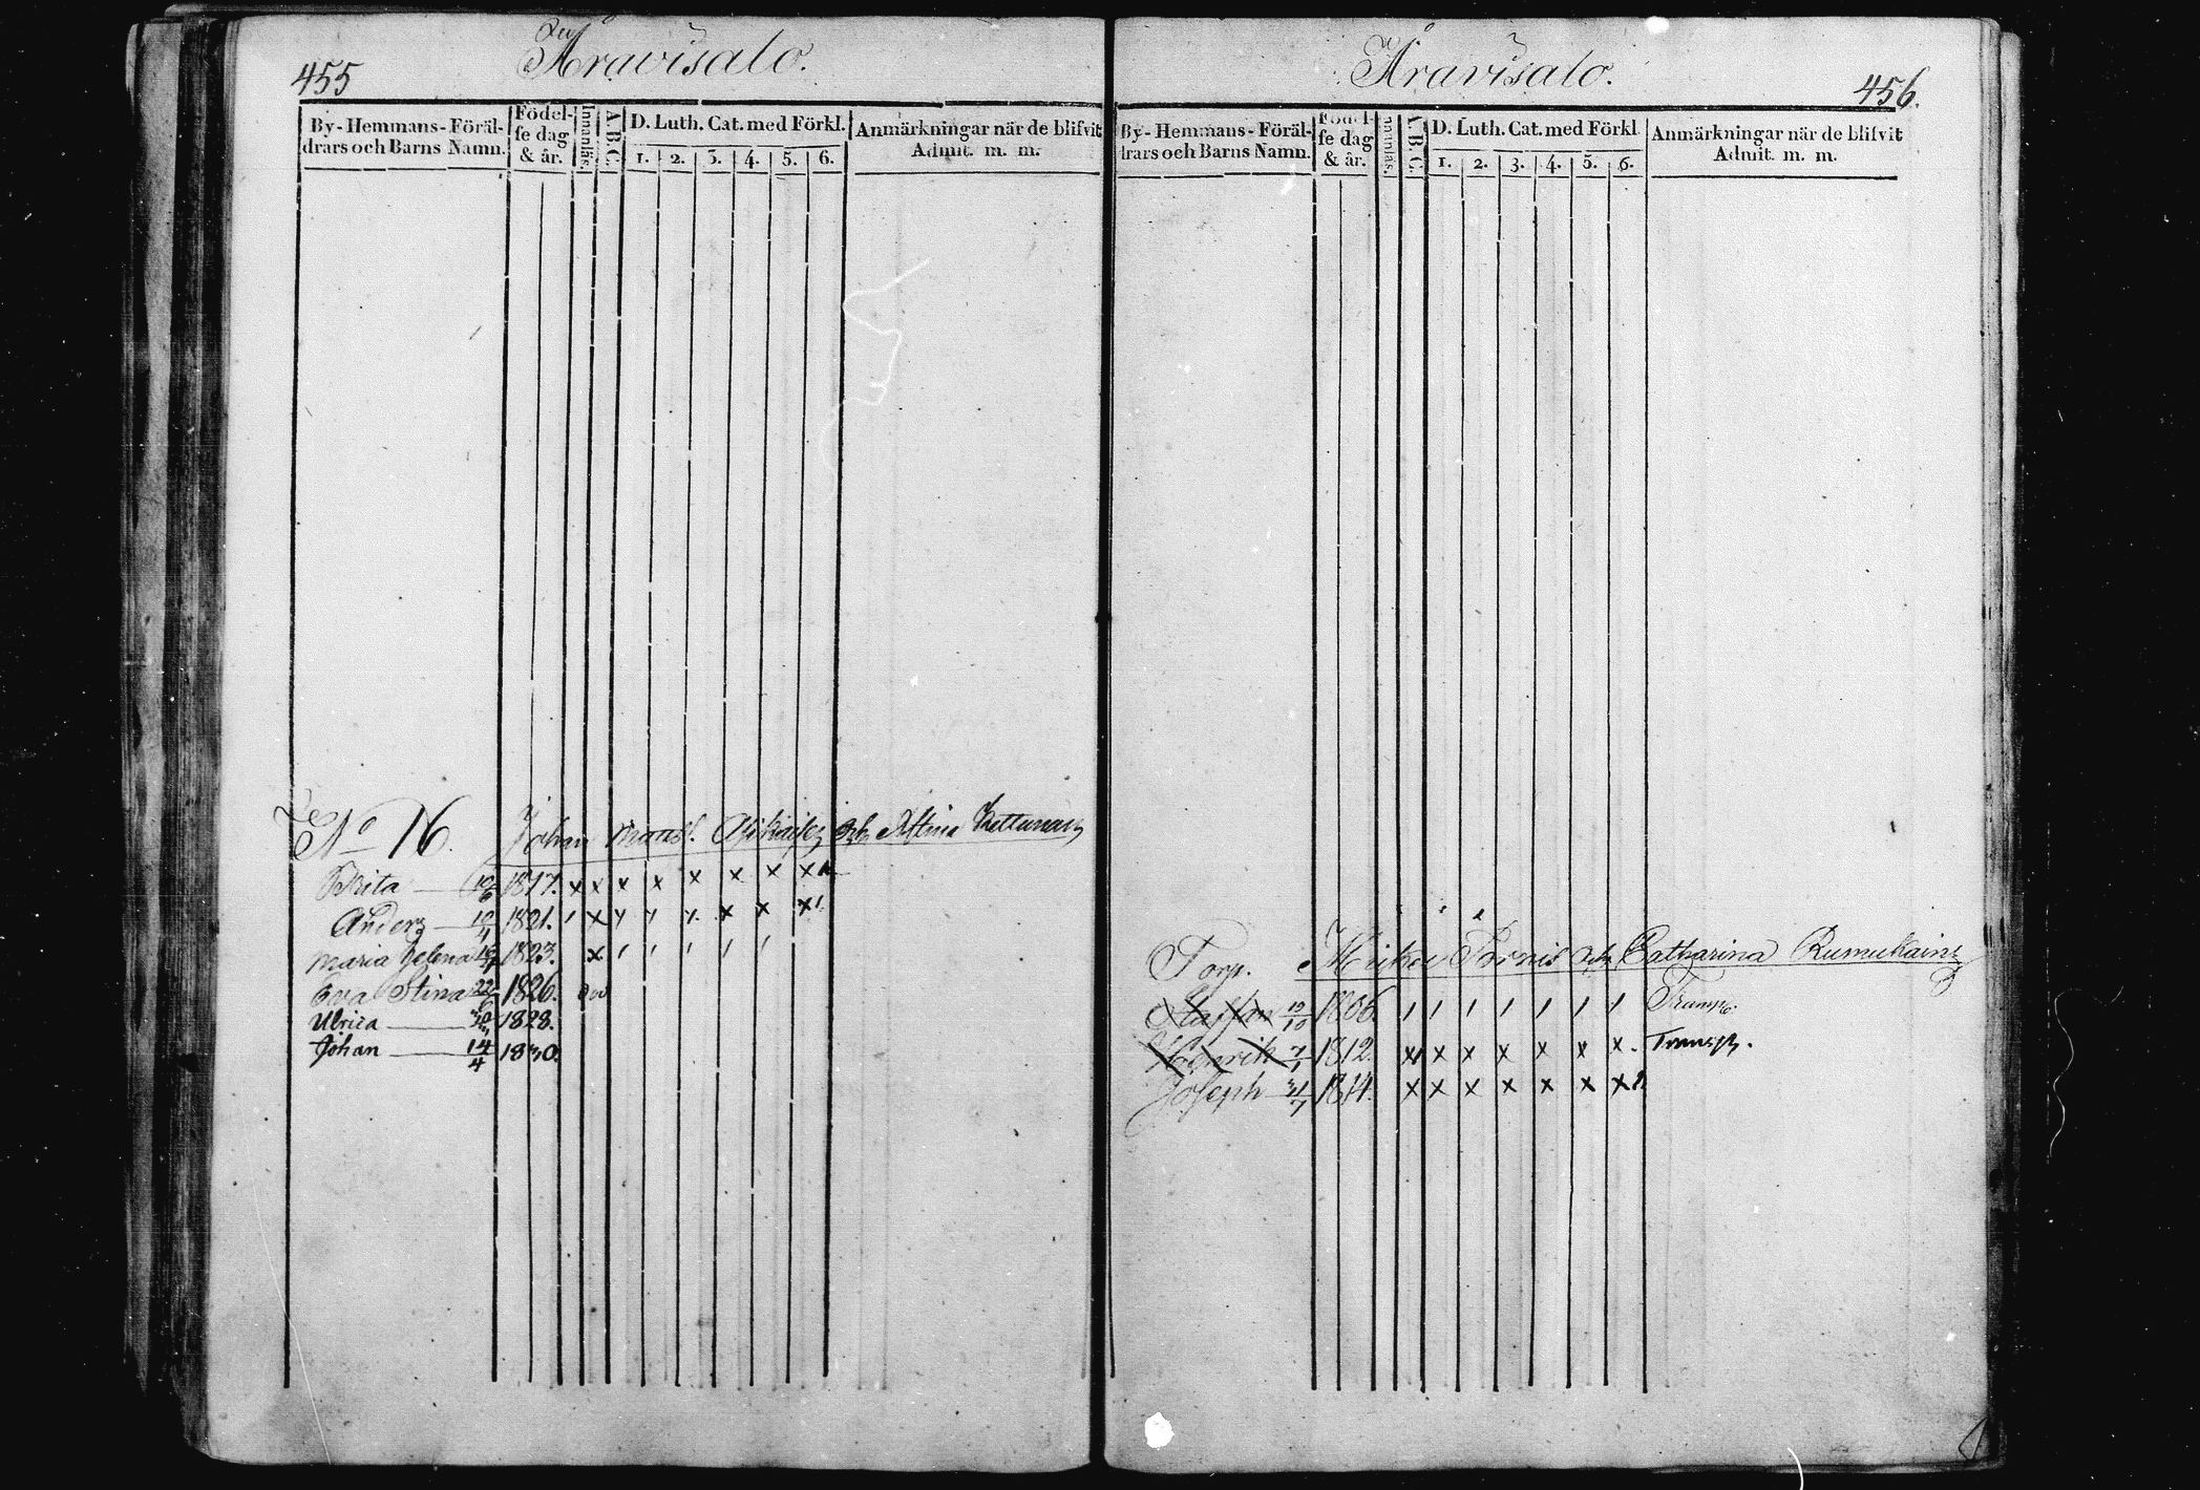 455
Åravisalo.
By-Hemmans-Föräl-
drars och Barns Namn.
Födel-
se dag
& år.
Innanläs.
A.B.C.
D. Luth. Cat. med Förkl.
1. 2. 3. 4. 5. 6.
Anmärkningar när de blifvit
Admit. m. m.
No 16. Johan Och Stina Kettunen
Brita 1817. x x x x x x x x
Anders 1821. x x x x
Maria Helena 1823. x
Eva Stina 22/6 1826.
Ulrica 1828.
Johan 14/4 1830.
Åravisalo.
456.
By-Hemmans-Föräl-
drars och Barns Namn.
Födel-
se dag
& år.
Innanläs.
A.B.C.
D. Luth. Cat. med Förkl.
1. 2. 3. 4. 5. 6.
Anmärkningar när de blifvit
Admit. m. m.
Torp. Catharina
Staffan 1806. Transp.
Henrik 1812. x x x x x x x. Transp.
Joseph 31/7 1814. x x x x x x x